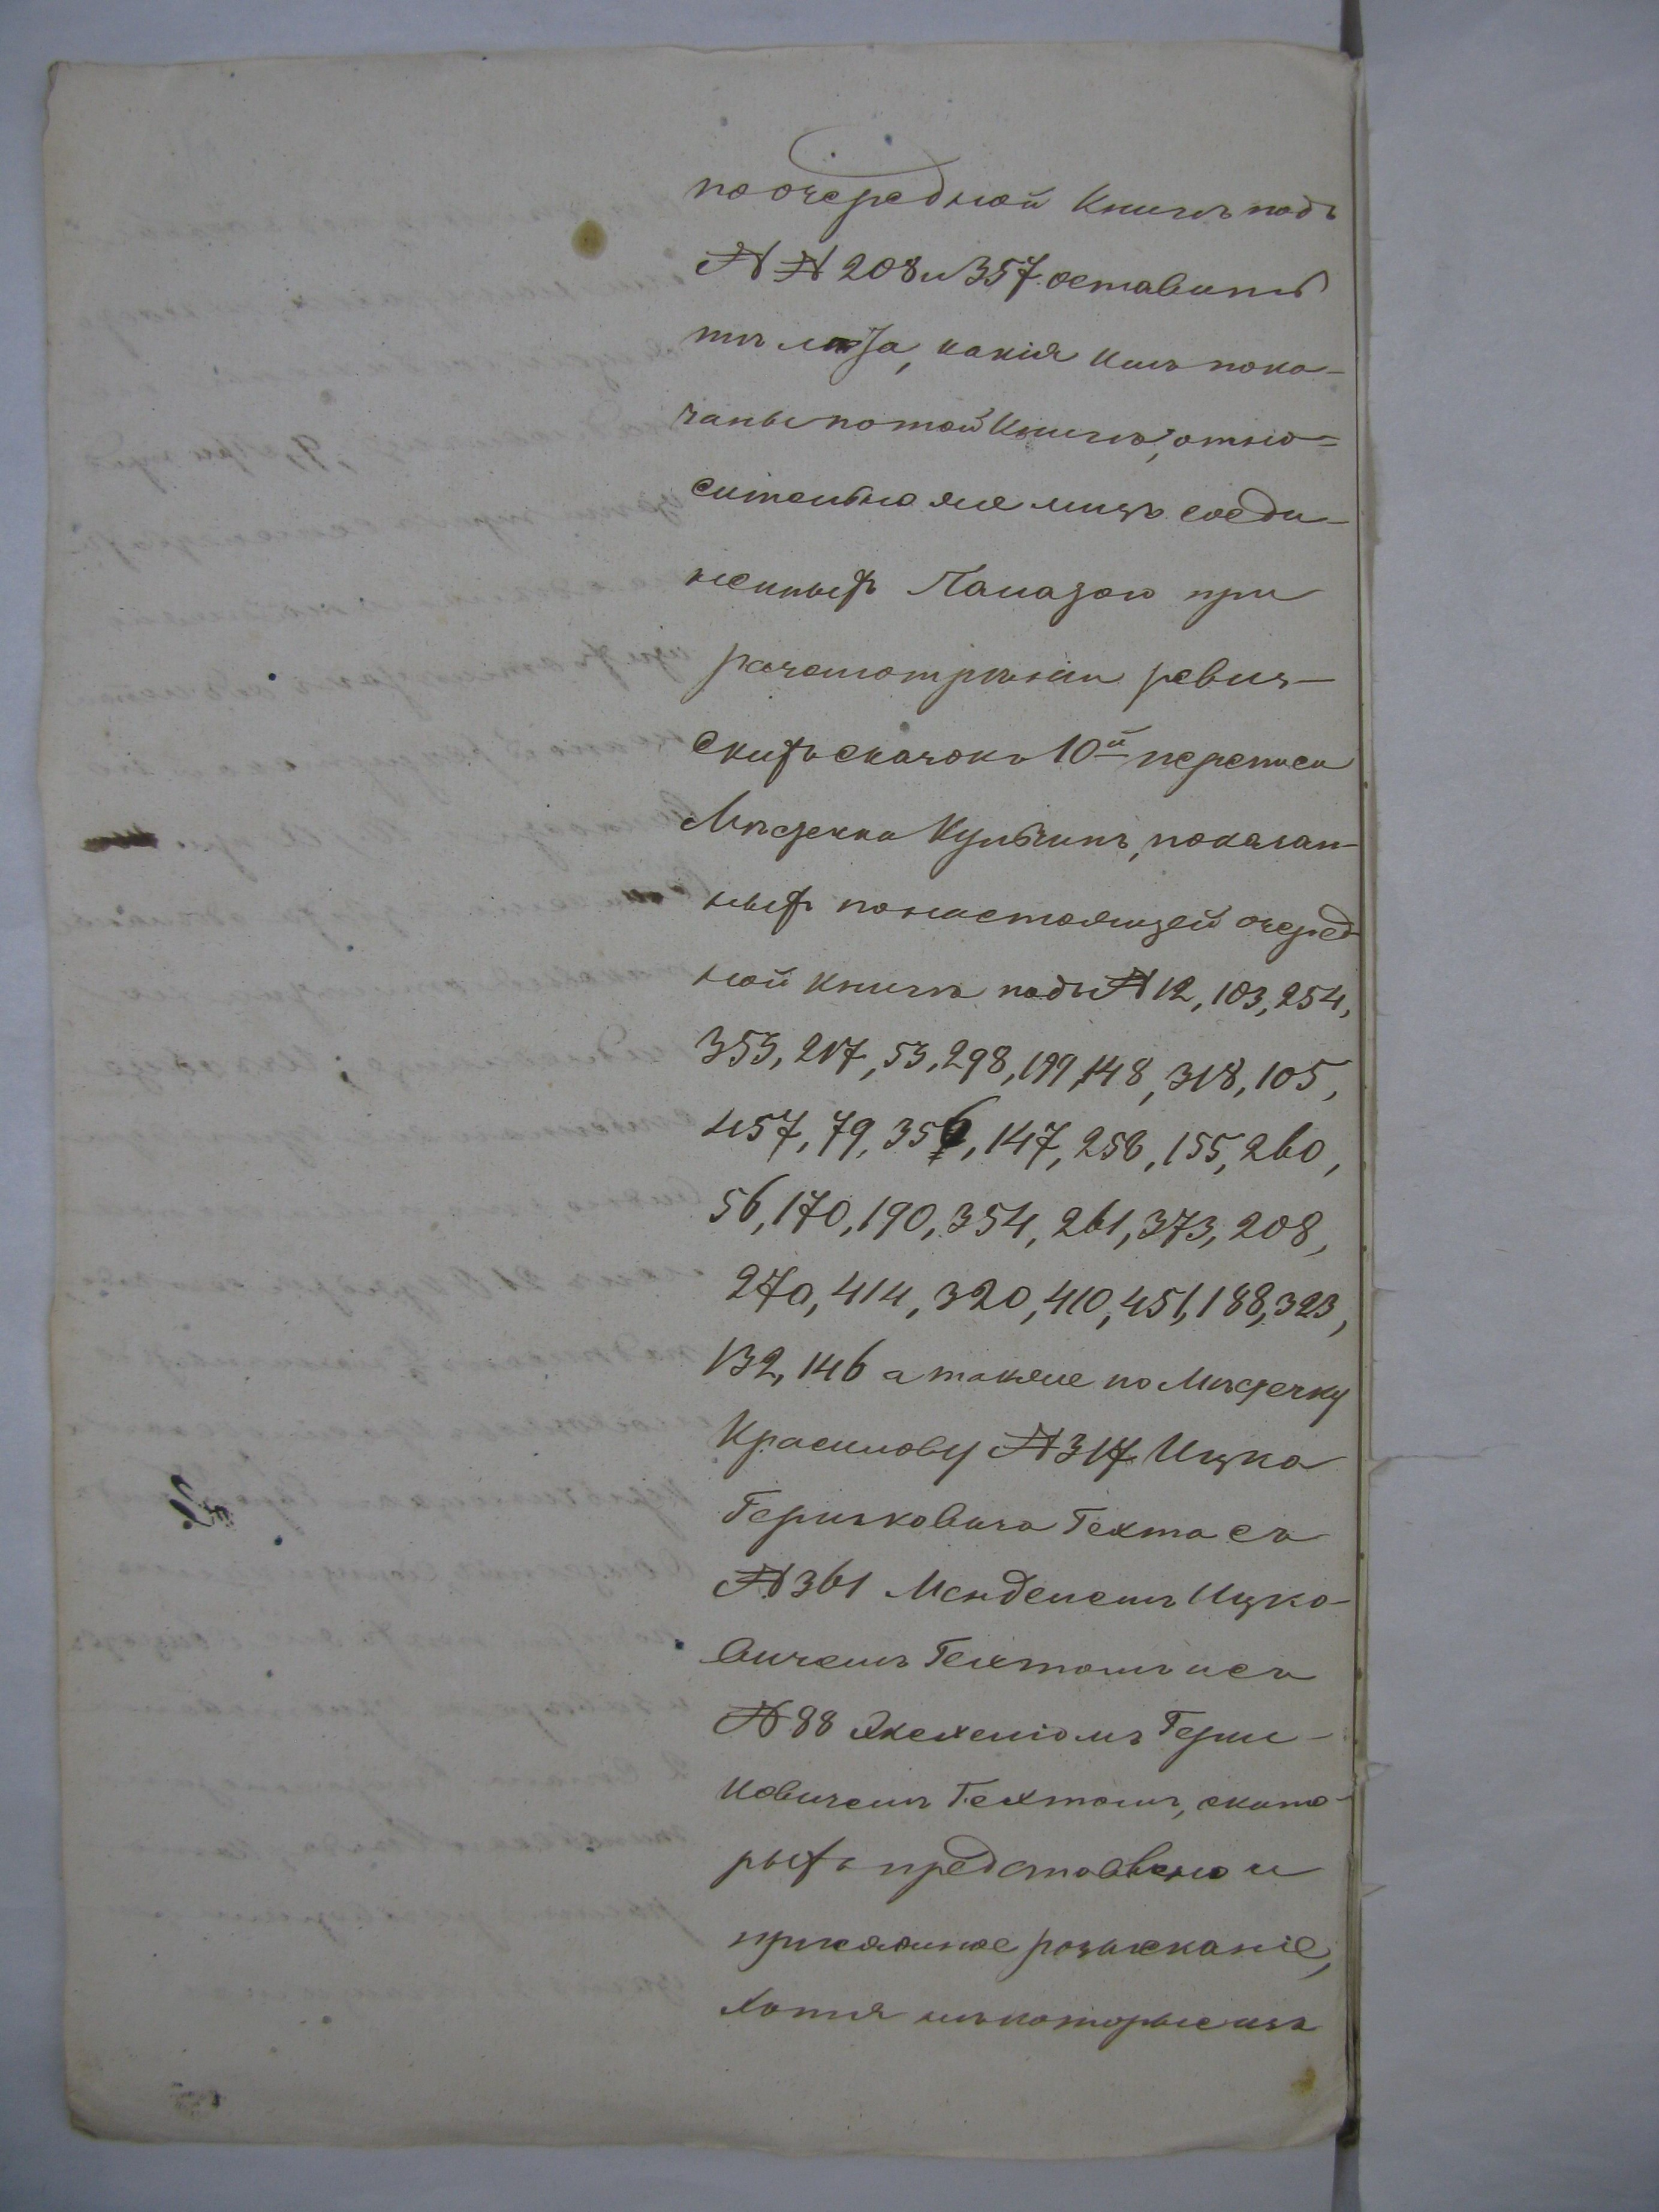 по очередной Книгѣ подъ
№№ 208 и 357 оставить
тѣ лѣта, какія имъ пока-
заны по той Книгѣ, отно-
сительно же лицъ соеди-
ненныхъ Палатою при
разсмотрѣніи ревиз-
скихъ сказокъ 10й переписи
Мѣстечка Кульчинъ, показан-
ныхъ по настоящей очеред-
ной книгѣ подъ № 12, 103, 254,
353, 217, 53, 298, 199, 148, 318, 105,
457, 79, 356, 147, 258, 155, 260,
56, 170, 190, 354, 261, 373, 208,
270, 414, 320, 410, 451, 188, 323,
132, 146 а также по Мѣстечку
Красилову № 317 Ицка
Гершковича Гехта съ
№ 361 Менделемъ Ицко-
вичемъ Гехтомъ и съ
№ 88 Гершковичемъ Гехтомъ, о кото-
рыхъ представлено и
присяжное розысканіе,
хотя нѣкоторые изъ